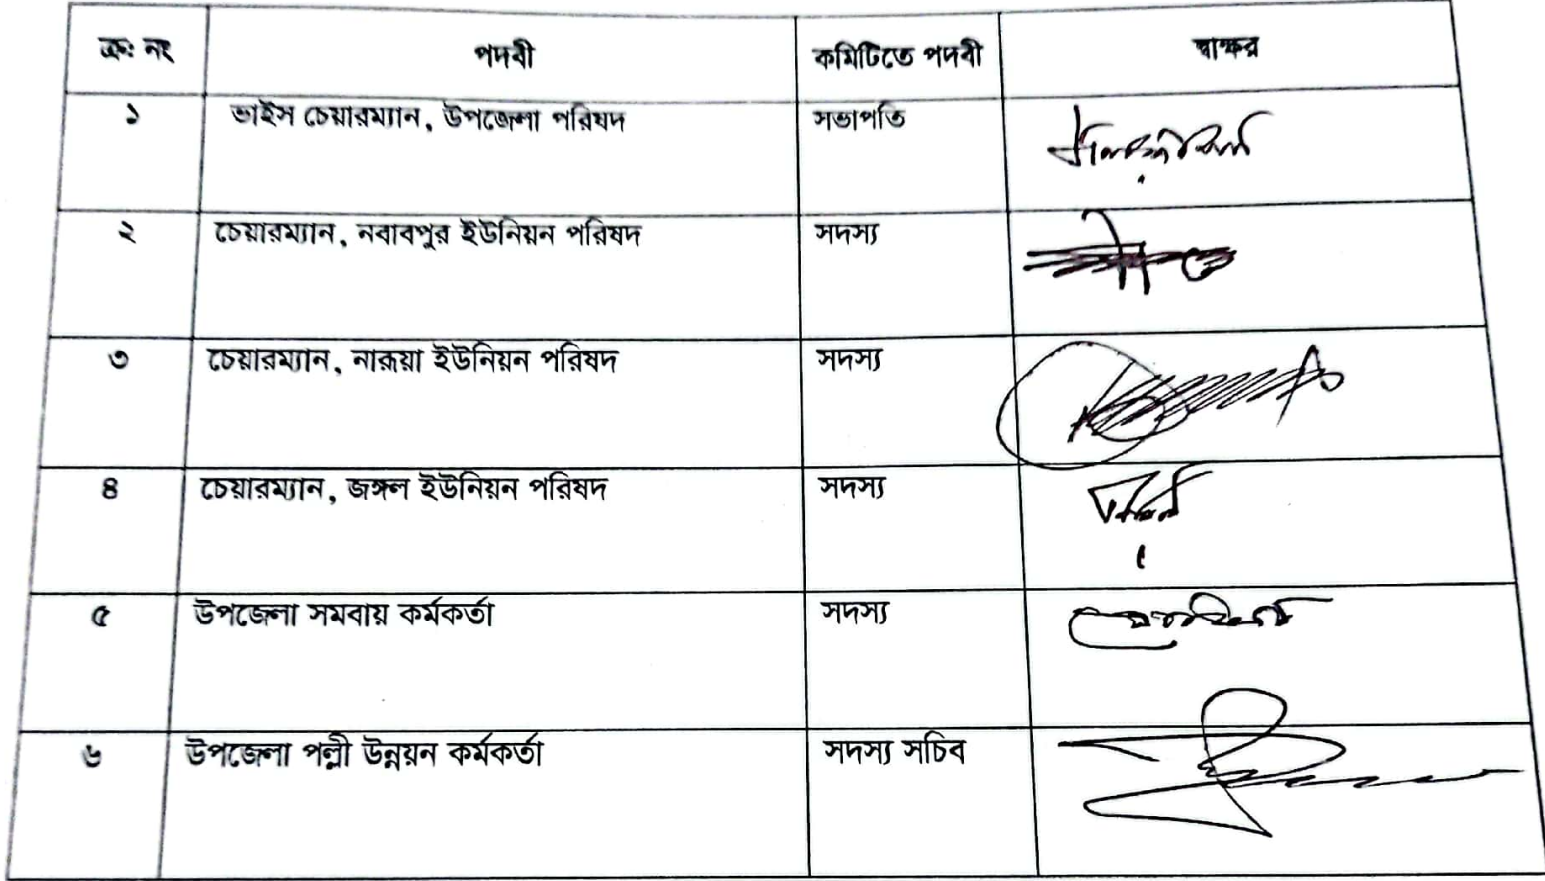 ক্রঃ নং পদবী কমিটিতে পদবী স্বাক্ষর
১ ভাইস চেয়ারম্যান, উপজেলা পরিষদ সভাপতি
২ চেয়ারম্যান, নবাবপুর ইউনিয়ন পরিষদ সদস্য
৩ চেয়ারম্যান, নারুয়া ইউনিয়ন পরিষদ সদস্য
৪ চেয়ারম্যান, জঙ্গল ইউনিয়ন পরিষদ সদস্য
৫ উপজেলা সমবায় কর্মকর্তা সদস্য
৬ উপজেলা পল্লী উন্নয়ন কর্মকর্তা সদস্য সচিব